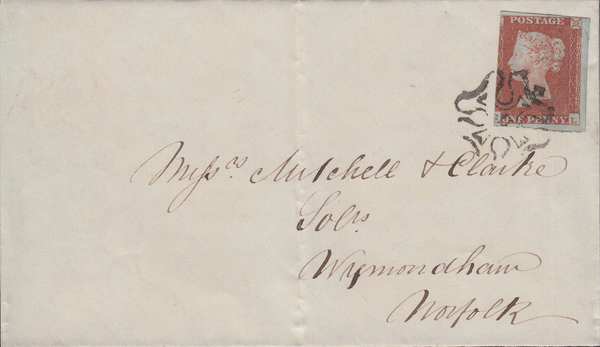 POSTAGE
ONE PENNY
Messrs Mitchell & Clarke
Solrs
Wymondham
Norfolk